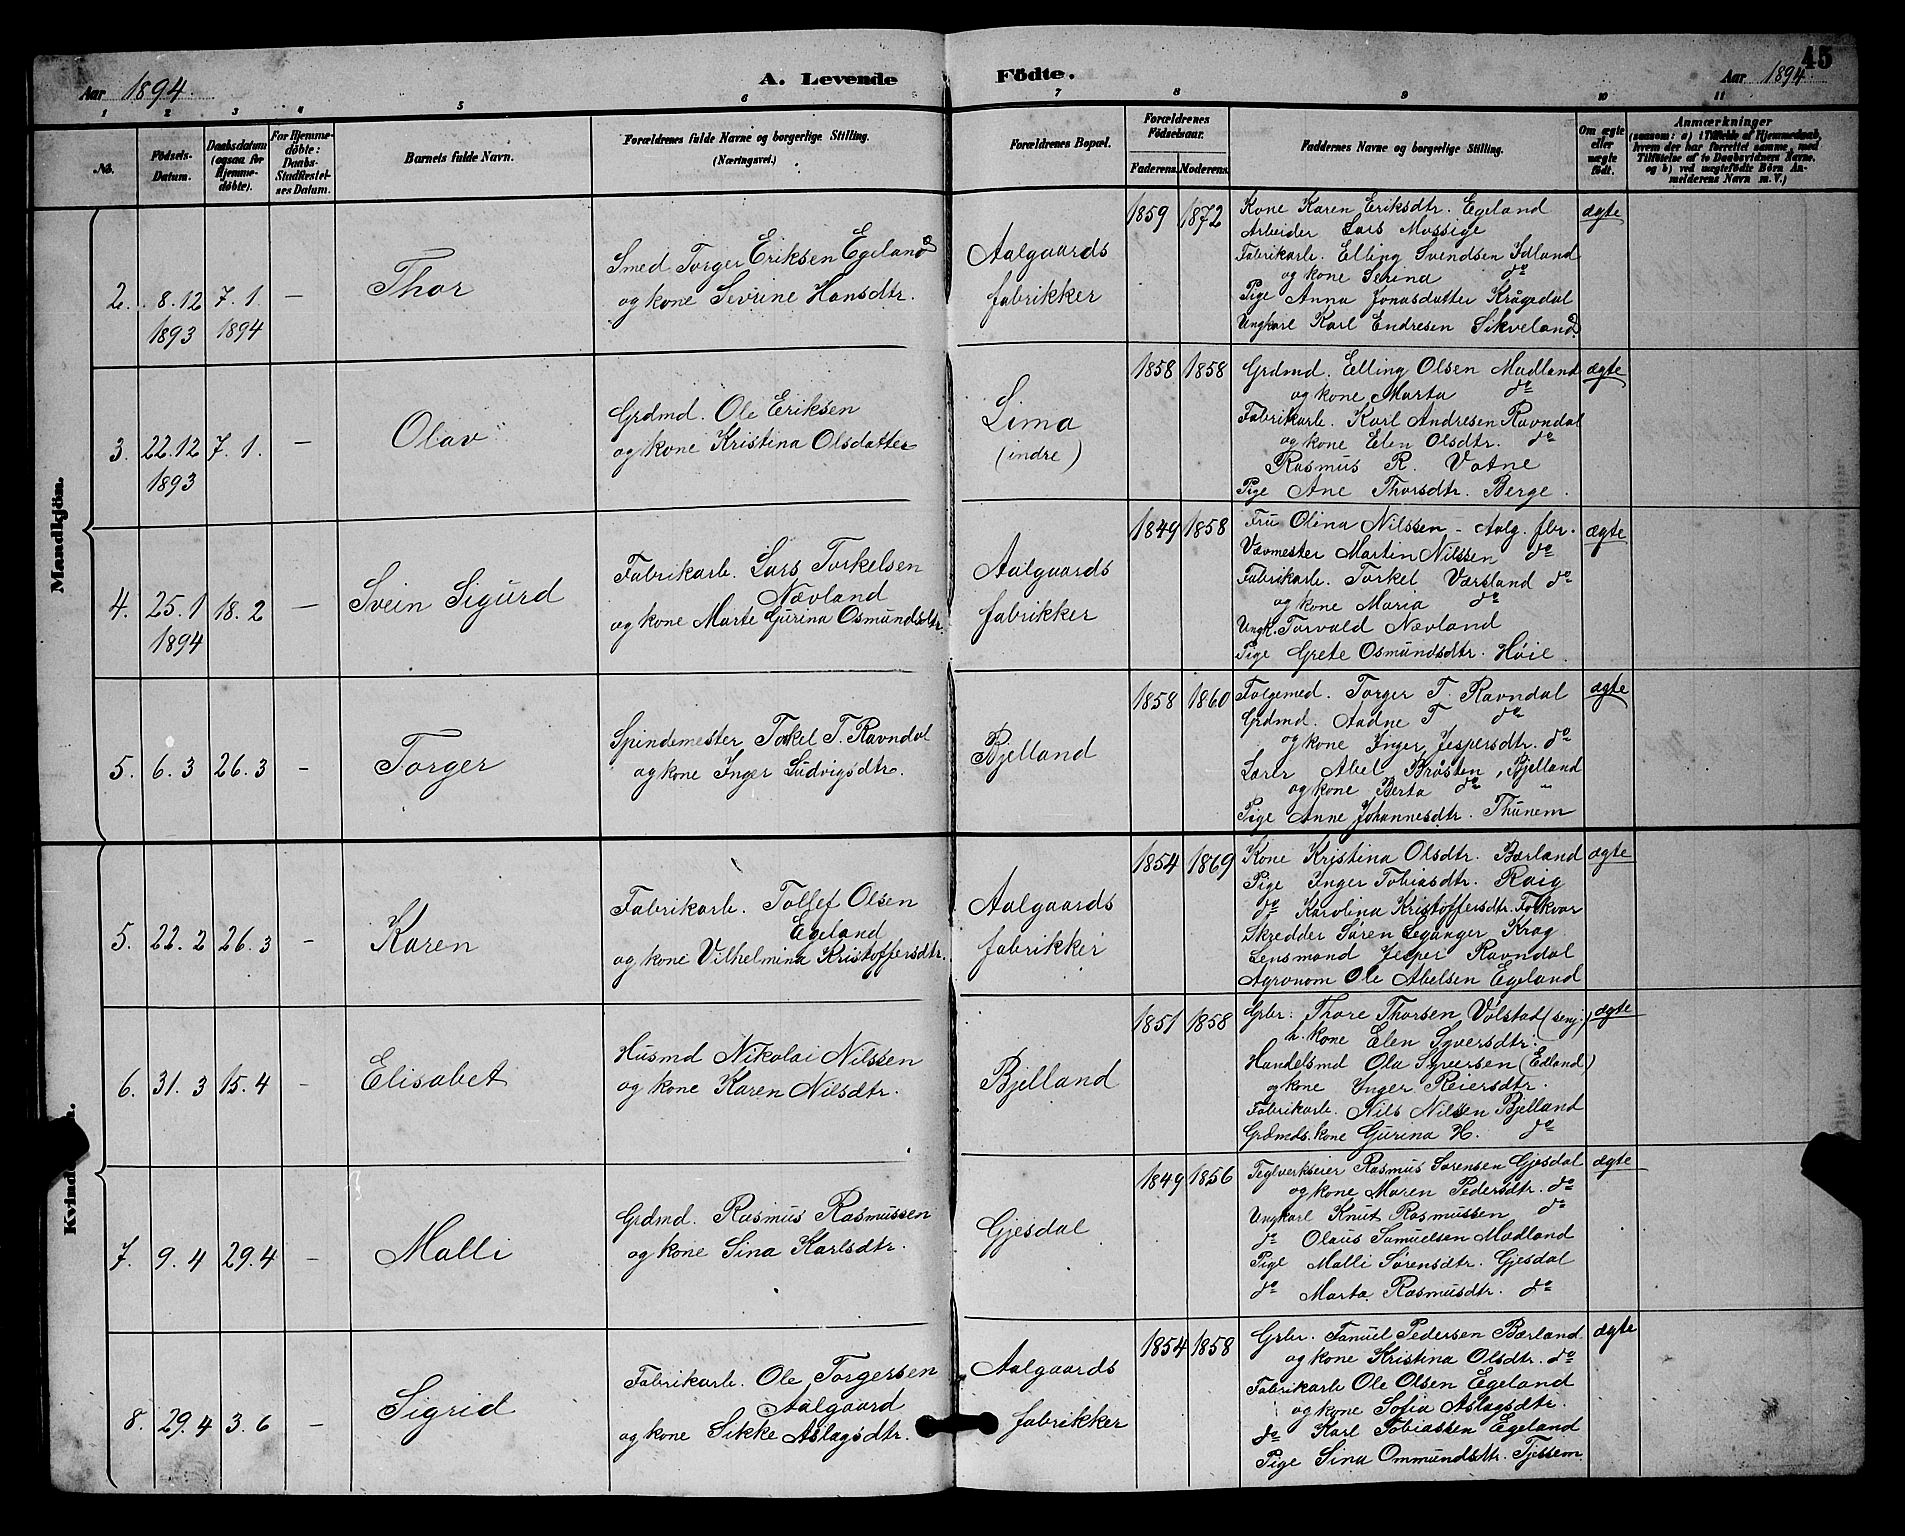 45
Aar 1894.
A. Levende Födte.
Aar 1894.
1 2 3 4 5 6 7 8 9 10 11
No.
Födsels-
Datum.
Daabsdatum
(ogsaa for
Hjemme-
döbte).
For Hjemme-
döbte:
Daabs-
Stadfæstel-
ses Datum.
Barnets fulde Navn.
Forældrenes fulde Navne og borgerlige Stilling.
(Næringsvei.)
Forældrenes Bopæl.
Forældrenes
Födselsaar.
Faderens. Moderens.
Faddernes Navne og borgerlige Stilling.
Om ægte
eller
uægte
födt.
Anmærkninger
(saasom: a) i Tilfælde af Hjemmedaab,
hvem der har forrettet samme, med
Tilföielse af to Daabsvidners Navne,
og b) ved uægtefödte Börn An-
melderens Navn m. V.)
Mandkjön.
2. 8.12 7.1. —
1893 1894
Thor
Smed Torger Eriksen Egeland
og kone Sevrine Hansdtr.
Aalgaards
fabrikker
1859 1872
Kone Karen Eriksdtr. Egeland
Arbeider Lars Mossige
Fabrikarb. Elling Svendsen Idland
og kone Serina do
Pige Anna Jonasdatter Krågedal
Ungkarl Karl Endresen Sikveland.
ægte
3. 22.12 7.1. —
1893
Olav
Grdmd. Ole Eriksen
og kone Kristina Olsdatter
Lima
(indre)
1858 1858
Grdmd. Elling Olsen Madland
og kone Marta do
Fabrikarb. Karl Andresen Ravndal
og kone Elen Olsdtr. do
Rasmus R. Vatne
Pige Ane Thorsdtr. Berge.
ægte
4. 25.1 18.2 —
1894
Svein Sigurd
Fabrikarb. Lars Torkelsen
Nævland
og kone Marte Gurina Osmundsdtr.
Aalgaards
fabrikker
1849 1858
Fru Olina Nilssen - Aalg. fbr.
Vævmester Martin Nilssen do
Fabrikarb. Torkel Værsland do
og kone Maria do
Ungk. Torvald Nævland
Pige Grete Osmundsdtr. Høie.
ægte
5. 6.3 26.3 —
Torger
Spindemester Torkel T. Ravndal
og kone Inger Ludvigsdtr.
Bjelland
1858 1860
Folgemd. Torger T. Ravndal
Grdmd. Aadne T do
og kone Inger Jespersdtr. do
Lærer Abel Bråsten, Bjelland
og kone Berta do "
Pige Anne Johannesdtr. Thunem
ægte
Kvind
5. 22.2 26.3 —
Karen
Fabrikarb. Tollef Olsen
Egeland
og kone Vilhelmina Kristoffersdtr.
Aalgaards
fabrikker
1854 1869
Kone Kristina Olsdtr. Bærland
Pige Inger Tobiasdtr. Raig
do Karolina Kristoffersdtr. Folkvar
Skrædder Søren Leganger Krag
Lensmand Jesper Ravndal
Agronom Ole Abelsen Egeland
ægte
6. 31.3 15.4 —
Elisabet
Husmd Nikolai Nilssen
og kone Karen Nilsdtr.
Bjelland
1851 1858
Grbr. Thore Thorsen Volstad (senj)
h. kone Elen Syversdtr.
Handelsmd Ola Syversen (Edland)
og kone Inger Reiersdtr.
Fabrikarb. Nils Nilsen Bjelland
Grdmds. kone Gurina H. do
ægte
7. 9.4 29.4 —
Malli
Grdmd. Rasmus Rasmussen
og kone Sina Karlsdtr.
Gjesdal
1849 1856
Teglverkseier Rasmus Sørensen Gjesdal
og kone Maren Pedersdtr. do
Ungkarl Knut Rasmussen do
do Olaus Samuelsen Madland
Pige Malli Sørensdtr. Gjesdal
do Marta Rasmusdtr. do
ægte
8. 29.4 3.6 —
Sigrid
Fabrikarb. Ole Torgersen
Aalgaard
og kone Sikke Aslagsdtr.
Aalgaards
fabrikker
1854 1858
Grbr. Tanuel Pedersen Bærland
og kone Kristina Olsdtr. do
Fabrikarb Ole Olsen Egeland
og kone Sofia Aslagsdtr.
do Karl Tobiassen Egeland
Pige Sina Ommundsdtr. Tjessem
ægte